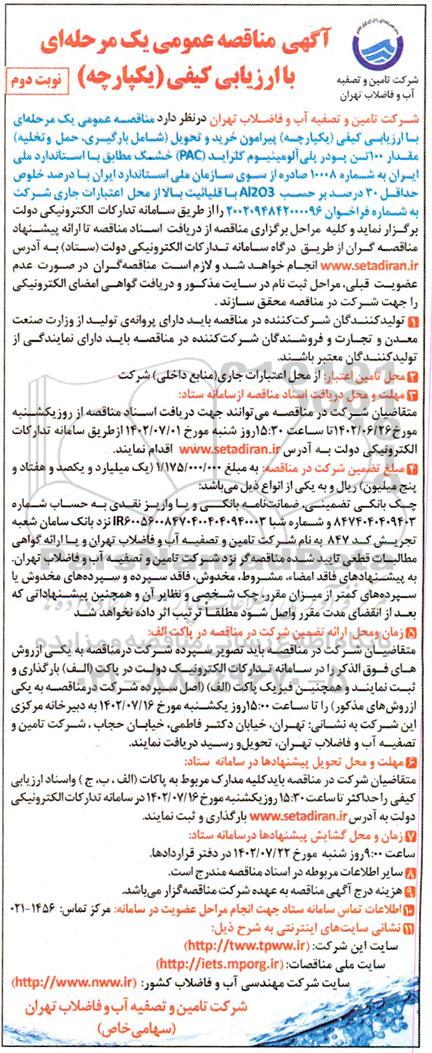 آگهی مناقصه عمومی یک مرحله‌ای
با ارزیابی کیفی (یکپارچه)
نوبت دوم
شرکت تامین و تصفیه
آب و فاضلاب تهران
شرکت تامین و تصفیه آب و فاضلاب تهران درنظر دارد مناقصه عمومی یک مرحله‌ای
با ارزیابی کیفی (یکپارچه) پیرامون خرید و تحویل (شامل بارگیری، حمل و تخلیه)
مقدار ۱۰۰ تن پودر پلی‌آلومینیوم کلراید (PAC) خشک مطابق با استاندارد ملی
ایران به شماره ۱۰۰۰۸ صادره از سوی سازمان ملی استاندارد ایران با درصد خلوص
حداقل ۳۰ درصد بر حسب Al2O3 با قلیائیت بالا از محل اعتبارات جاری شرکت
به شماره فراخوان ۲۰۰۲۰۹۴۸۴۲۰۰۰۰۹۶ را از طریق سامانه تدارکات الکترونیکی دولت
برگزار نماید و کلیه مراحل برگزاری مناقصه از دریافت اسناد مناقصه تا ارائه پیشنهاد
مناقصه گران از طریق درگاه سامانه تدارکات الکترونیکی دولت (ستاد) به آدرس
www.setadiran.ir انجام خواهد شد و لازم است مناقصه‌گران در صورت عدم
عضویت قبلی، مراحل ثبت نام در سایت مذکور و دریافت گواهی امضای الکترونیکی
را جهت شرکت در مناقصه محقق سازند.
۱ تولیدکنندگان شرکت‌کننده در مناقصه باید دارای پروانه‌ی تولید از وزارت صنعت
معدن و تجارت و فروشندگان شرکت‌کننده در مناقصه باید دارای نمایندگی از
تولیدکنندگان معتبر باشند.
۲ محل تامین اعتبار: از محل اعتبارات جاری (منابع داخلی) شرکت
۳ مهلت و محل دریافت اسناد مناقصه از سامانه ستاد:
متقاضیان شرکت در مناقصه می‌توانند جهت دریافت اسناد مناقصه از روز یکشنبه
مورخ ۱۴۰۲/۰۶/۲۶ تا ساعت ۱۵:۳۰ روز شنبه مورخ ۱۴۰۲/۰۷/۰۱ از طریق سامانه تدارکات
الکترونیکی دولت به آدرس www.setadiran.ir اقدام نمایند.
۴ مبلغ تضمین شرکت در مناقصه: به مبلغ ۱/۱۷۵/۰۰۰/۰۰۰ (یک میلیارد و یکصد و هفتاد و
پنج میلیون) ریال و به یکی از انواع ذیل می‌باشد:
چک بانکی تضمینی، ضمانت‌نامه بانکی و یا واریز نقدی به حساب شماره
۸۴۷۴۰۴۰۴۰۹۴۰۳ و شماره شبا IR۶۰۰۵۶۰۰۸۴۷۰۴۰۰۴۰۴۰۹۴۰۰۳ نزد بانک سامان شعبه
تجریش کد ۸۴۷ به نام شرکت تامین و تصفیه آب و فاضلاب تهران و یا ارائه گواهی
مطالبات قطعی تایید شده مناقصه‌گر نزد شرکت تامین و تصفیه آب و فاضلاب تهران.
به پیشنهادهای فاقد امضاء، مشروط، مخدوش، فاقد سپرده و سپرده‌های مخدوش یا
سپرده‌های کمتر از میزان مقرر، چک شخصی و نظایر آن و همچنین پیشنهاداتی که
بعد از انقضای مدت مقرر واصل شود مطلقاً ترتیب اثر داده نخواهد شد
۵ زمان و محل ارائه تضمین شرکت در مناقصه در پاکت الف:
متقاضیان شرکت در مناقصه باید تصویر سپرده شرکت در مناقصه به یکی از روش
های فوق الذکر را در سامانه تدارکات الکترونیک دولت در پاکت (الف) بارگذاری و
ثبت نمایند و همچنین فیزیک پاکت (الف) (اصل سپرده شرکت در مناقصه به یکی
از روش‌های مذکور) را تا ساعت ۱۵:۰۰ روز یکشنبه مورخ ۱۴۰۲/۰۷/۱۶ به دبیرخانه مرکزی
این شرکت به نشانی: تهران، خیابان دکتر فاطمی، خیابان حجاب، شرکت تامین و
تصفیه آب و فاضلاب تهران، تحویل و رسید دریافت نمایند.
۶ مهلت و محل تحویل پیشنهادها در سامانه ستاد:
متقاضیان شرکت در مناقصه باید کلیه مدارک مربوط به پاکات (الف، ب، ج) و اسناد ارزیابی
کیفی را حداکثر تا ساعت ۱۵:۳۰ روز یکشنبه مورخ ۱۴۰۲/۰۷/۱۶ در سامانه تدارکات الکترونیکی
دولت به آدرس www.setadiran.ir بارگذاری و ثبت نمایند.
۷ زمان و محل گشایش پیشنهادها در سامانه ستاد:
ساعت ۹:۰۰ روز شنبه مورخ ۱۴۰۲/۰۷/۲۲ در دفتر قراردادها.
۸ سایر اطلاعات مربوطه در اسناد مناقصه مندرج است.
۹ هزینه درج آگهی مناقصه به عهده شرکت مناقصه‌گزار می‌باشد.
۱۰ اطلاعات تماس سامانه ستاد جهت انجام مراحل عضویت در سامانه: مرکز تماس: ۱۴۵۶-۰۲۱
۱۱ نشانی سایت‌های اینترنتی به شرح ذیل:
سایت این شرکت: (http://tww.tpww.ir)
سایت ملی مناقصات: (http://iets.mporg.ir)
سایت شرکت مهندسی آب و فاضلاب کشور: (http://www.nww.ir)
شرکت تامین و تصفیه آب و فاضلاب تهران
(سهامی خاص)